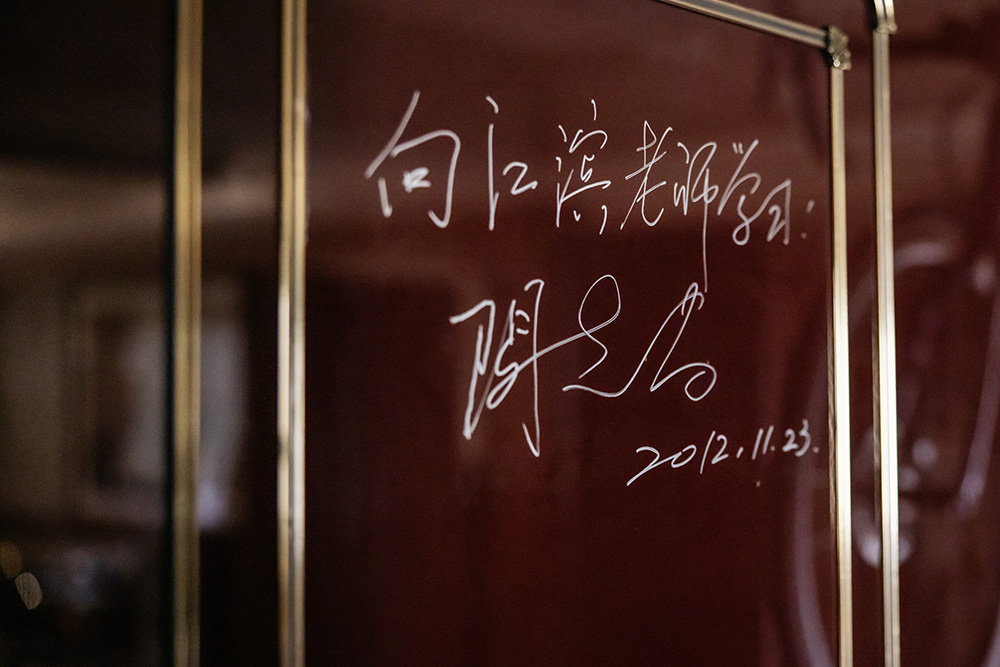 向江滨老师学习!
2012.11.23.